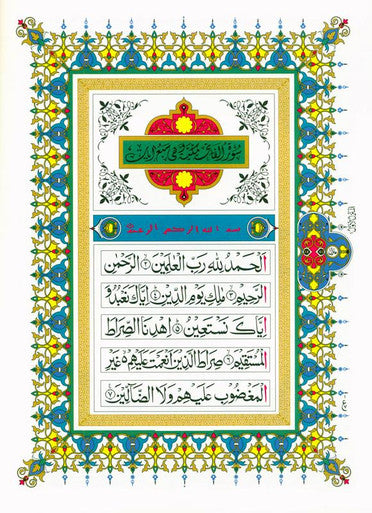 سورة الفاتحة مكية وهي سبع آيات
بسم الله الرحمن الرحيم
اَلْحَمْدُ لِلّٰهِ رَبِّ الْعٰلَمِيْنَ ٢ الرَّحْمٰنِ
الرَّحِيْمِ ٣ مٰلِكِ يَوْمِ الدِّيْنِ ٤ اِيَّاكَ نَعْبُدُ وَ
اِيَّاكَ نَسْتَعِيْنُ ٥ اِهْدِنَا الصِّرَاطَ
الْمُسْتَقِيْمَ ٦ صِرَاطَ الَّذِيْنَ اَنْعَمْتَ عَلَيْهِمْ غَيْرِ
الْمَغْضُوْبِ عَلَيْهِمْ وَلَا الضَّآلِّيْنَ ٧